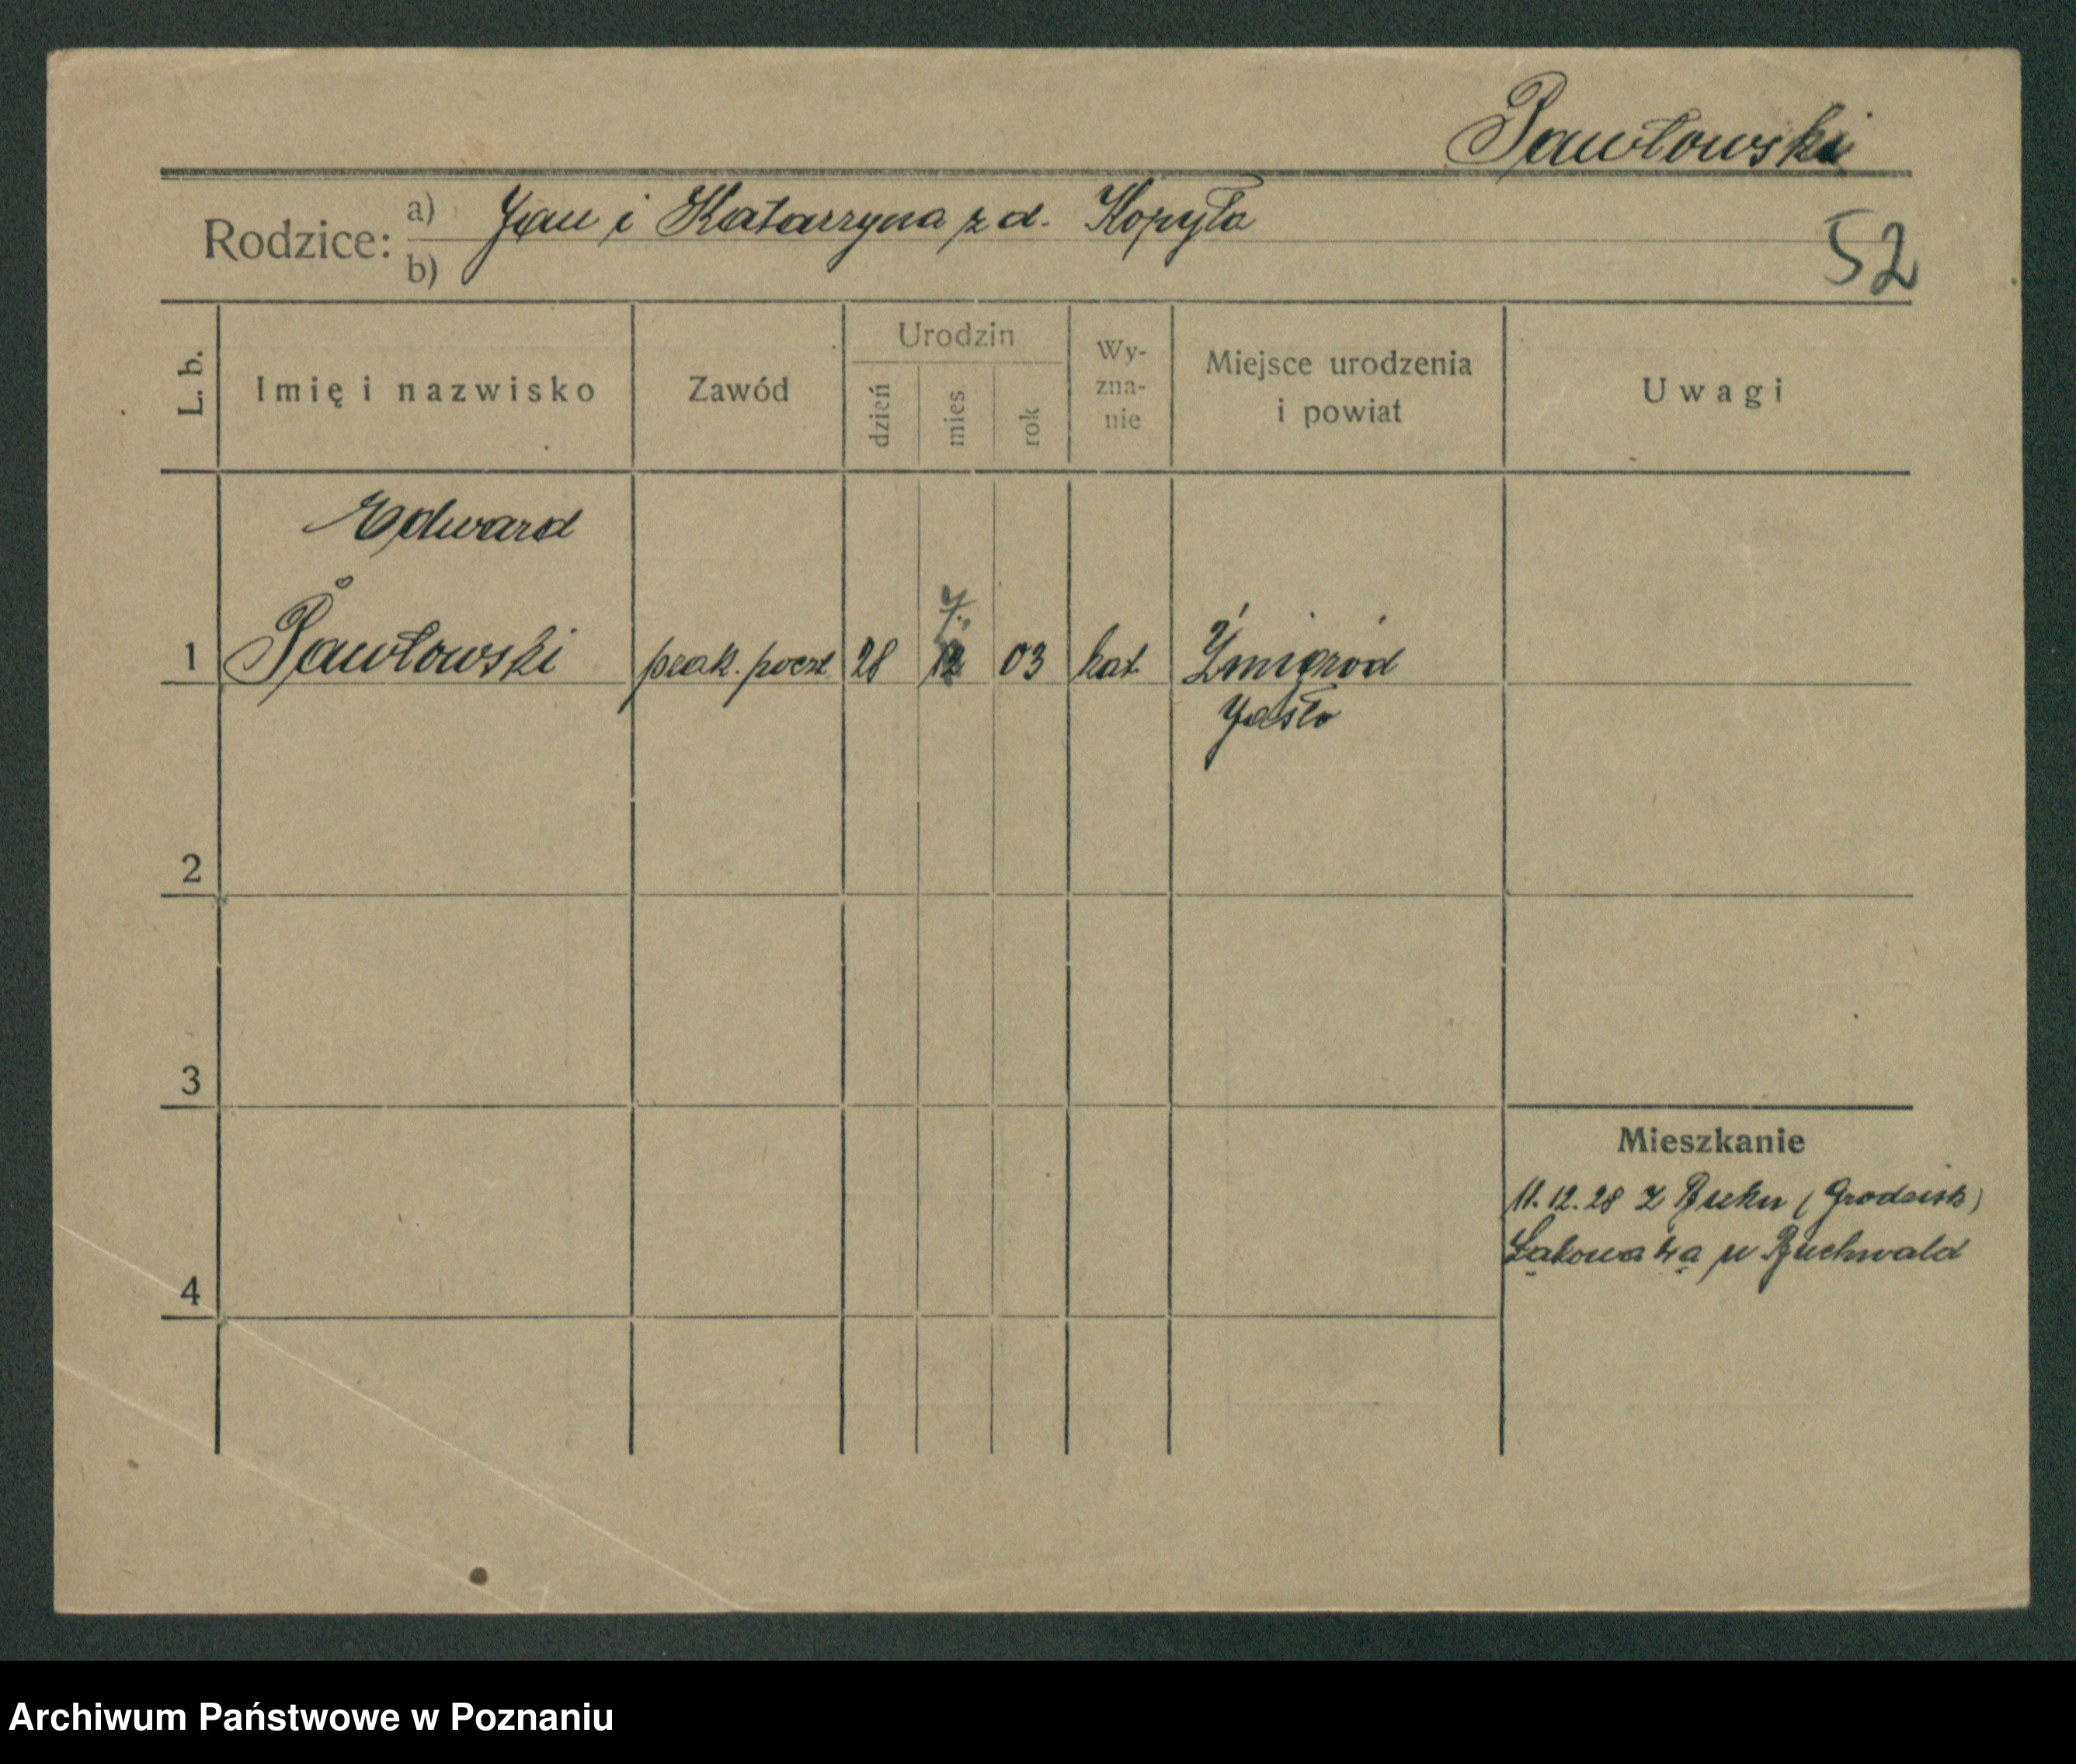 Pawłowski
Rodzice:
a) Jan i Katarzyna z d. Kopyła
b)
52
L. b.
Imię i nazwisko
Zawód
Urodzin
dzień
mies
rok
Wy-
zna-
nie
Miejsce urodzenia
i powiat
Uwagi
Edward
7.
1 Pawłowski prak. poczt. 28 12 03 kat. Żmigród
Jasło
2
3
4
Mieszkanie
11.12.28 z Buku (Grodzisk)
Łąkowa 4a u Buchwald
Archiwum Państwowe w Poznaniu